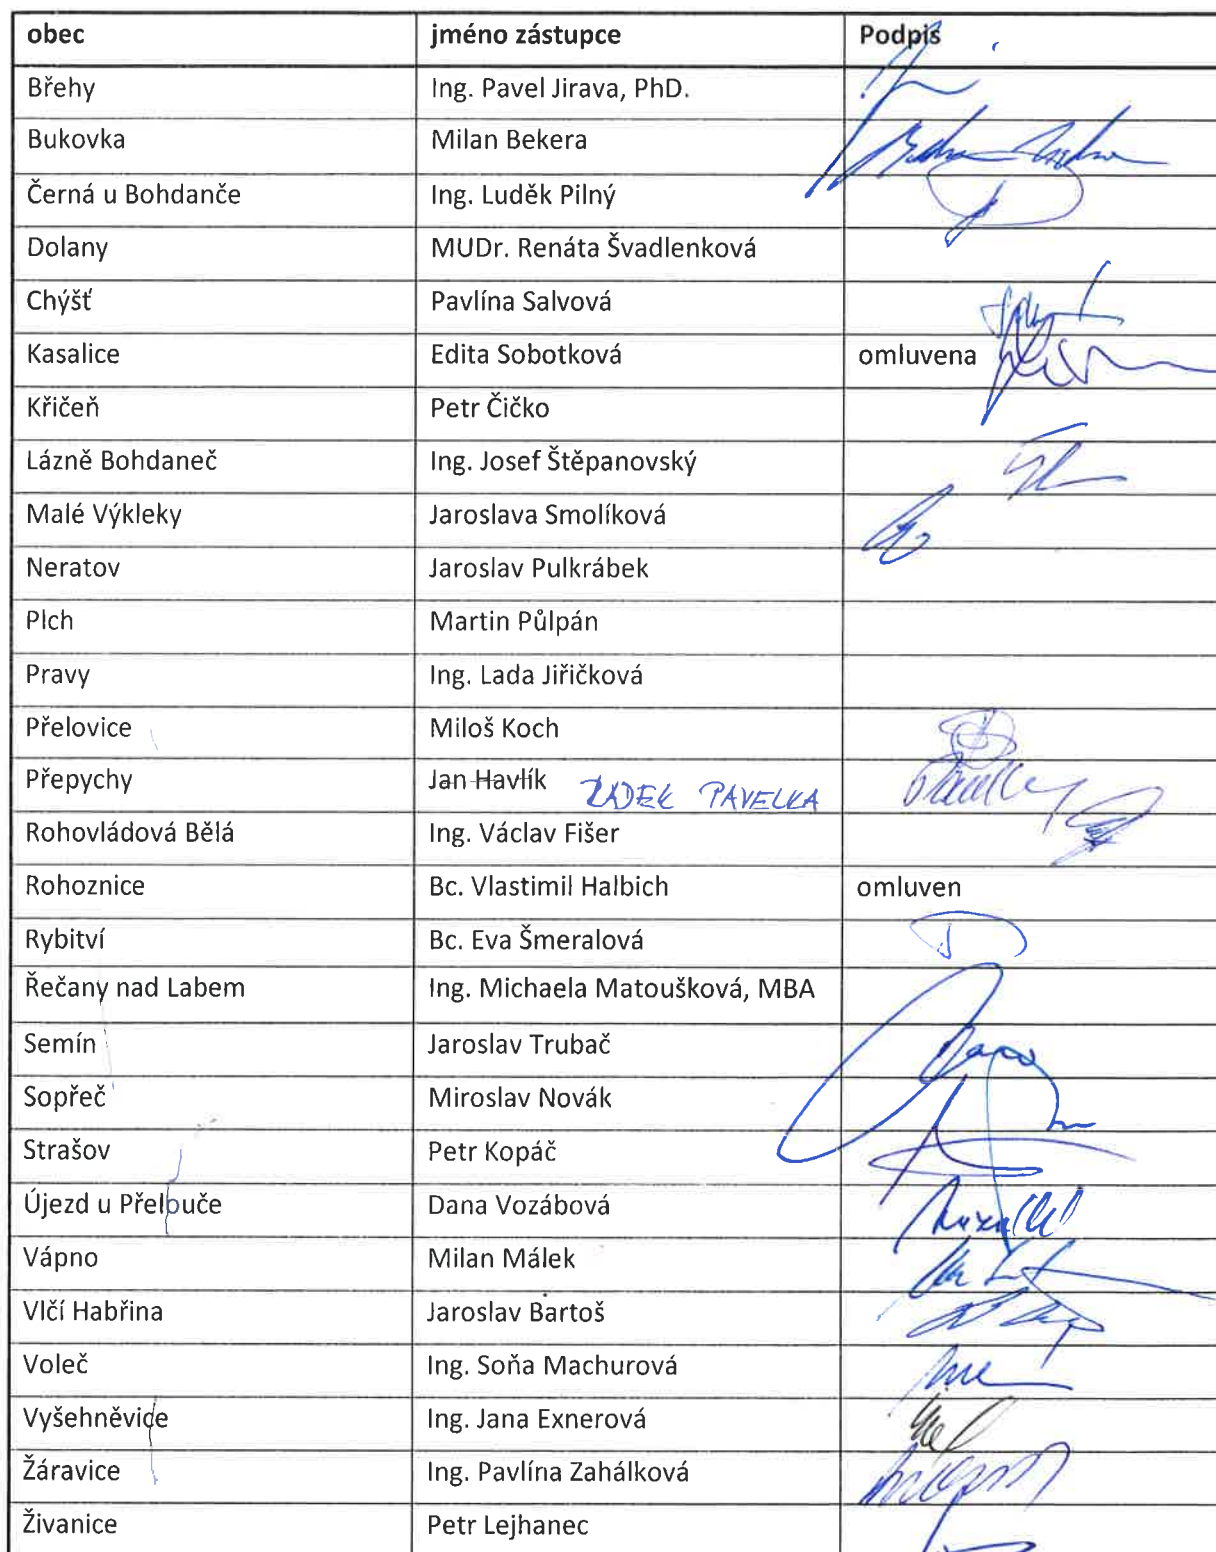 obec jméno zástupce Podpis
Břehy Ing. Pavel Jirava, PhD.
Bukovka Milan Bekera
Černá u Bohdanče Ing. Luděk Pilný
Dolany MUDr. Renáta Švadlenková
Chýšť Pavlína Salvová
Kasalice Edita Sobotková omluvena
Křičeň Petr Čičko
Lázně Bohdaneč Ing. Josef Štěpanovský
Malé Výkleky Jaroslava Smolíková
Neratov Jaroslav Pulkrábek
Plch Martin Půlpán
Pravy Ing. Lada Jiřičková
Přelovice Miloš Koch
Přepychy Jan Havlík PAVELKA
Rohovládová Bělá Ing. Václav Fišer
Rohoznice Bc. Vlastimil Halbich omluven
Rybitví Bc. Eva Šmeralová
Řečany nad Labem Ing. Michaela Matoušková, MBA
Semín Jaroslav Trubač
Sopřeč Miroslav Novák
Strašov Petr Kopáč
Újezd u Přelouče Dana Vozábová
Vápno Milan Málek
Vlčí Habřina Jaroslav Bartoš
Voleč Ing. Soňa Machurová
Vyšehněvice Ing. Jana Exnerová
Žáravice Ing. Pavlína Zahálková
Živanice Petr Lejhanec